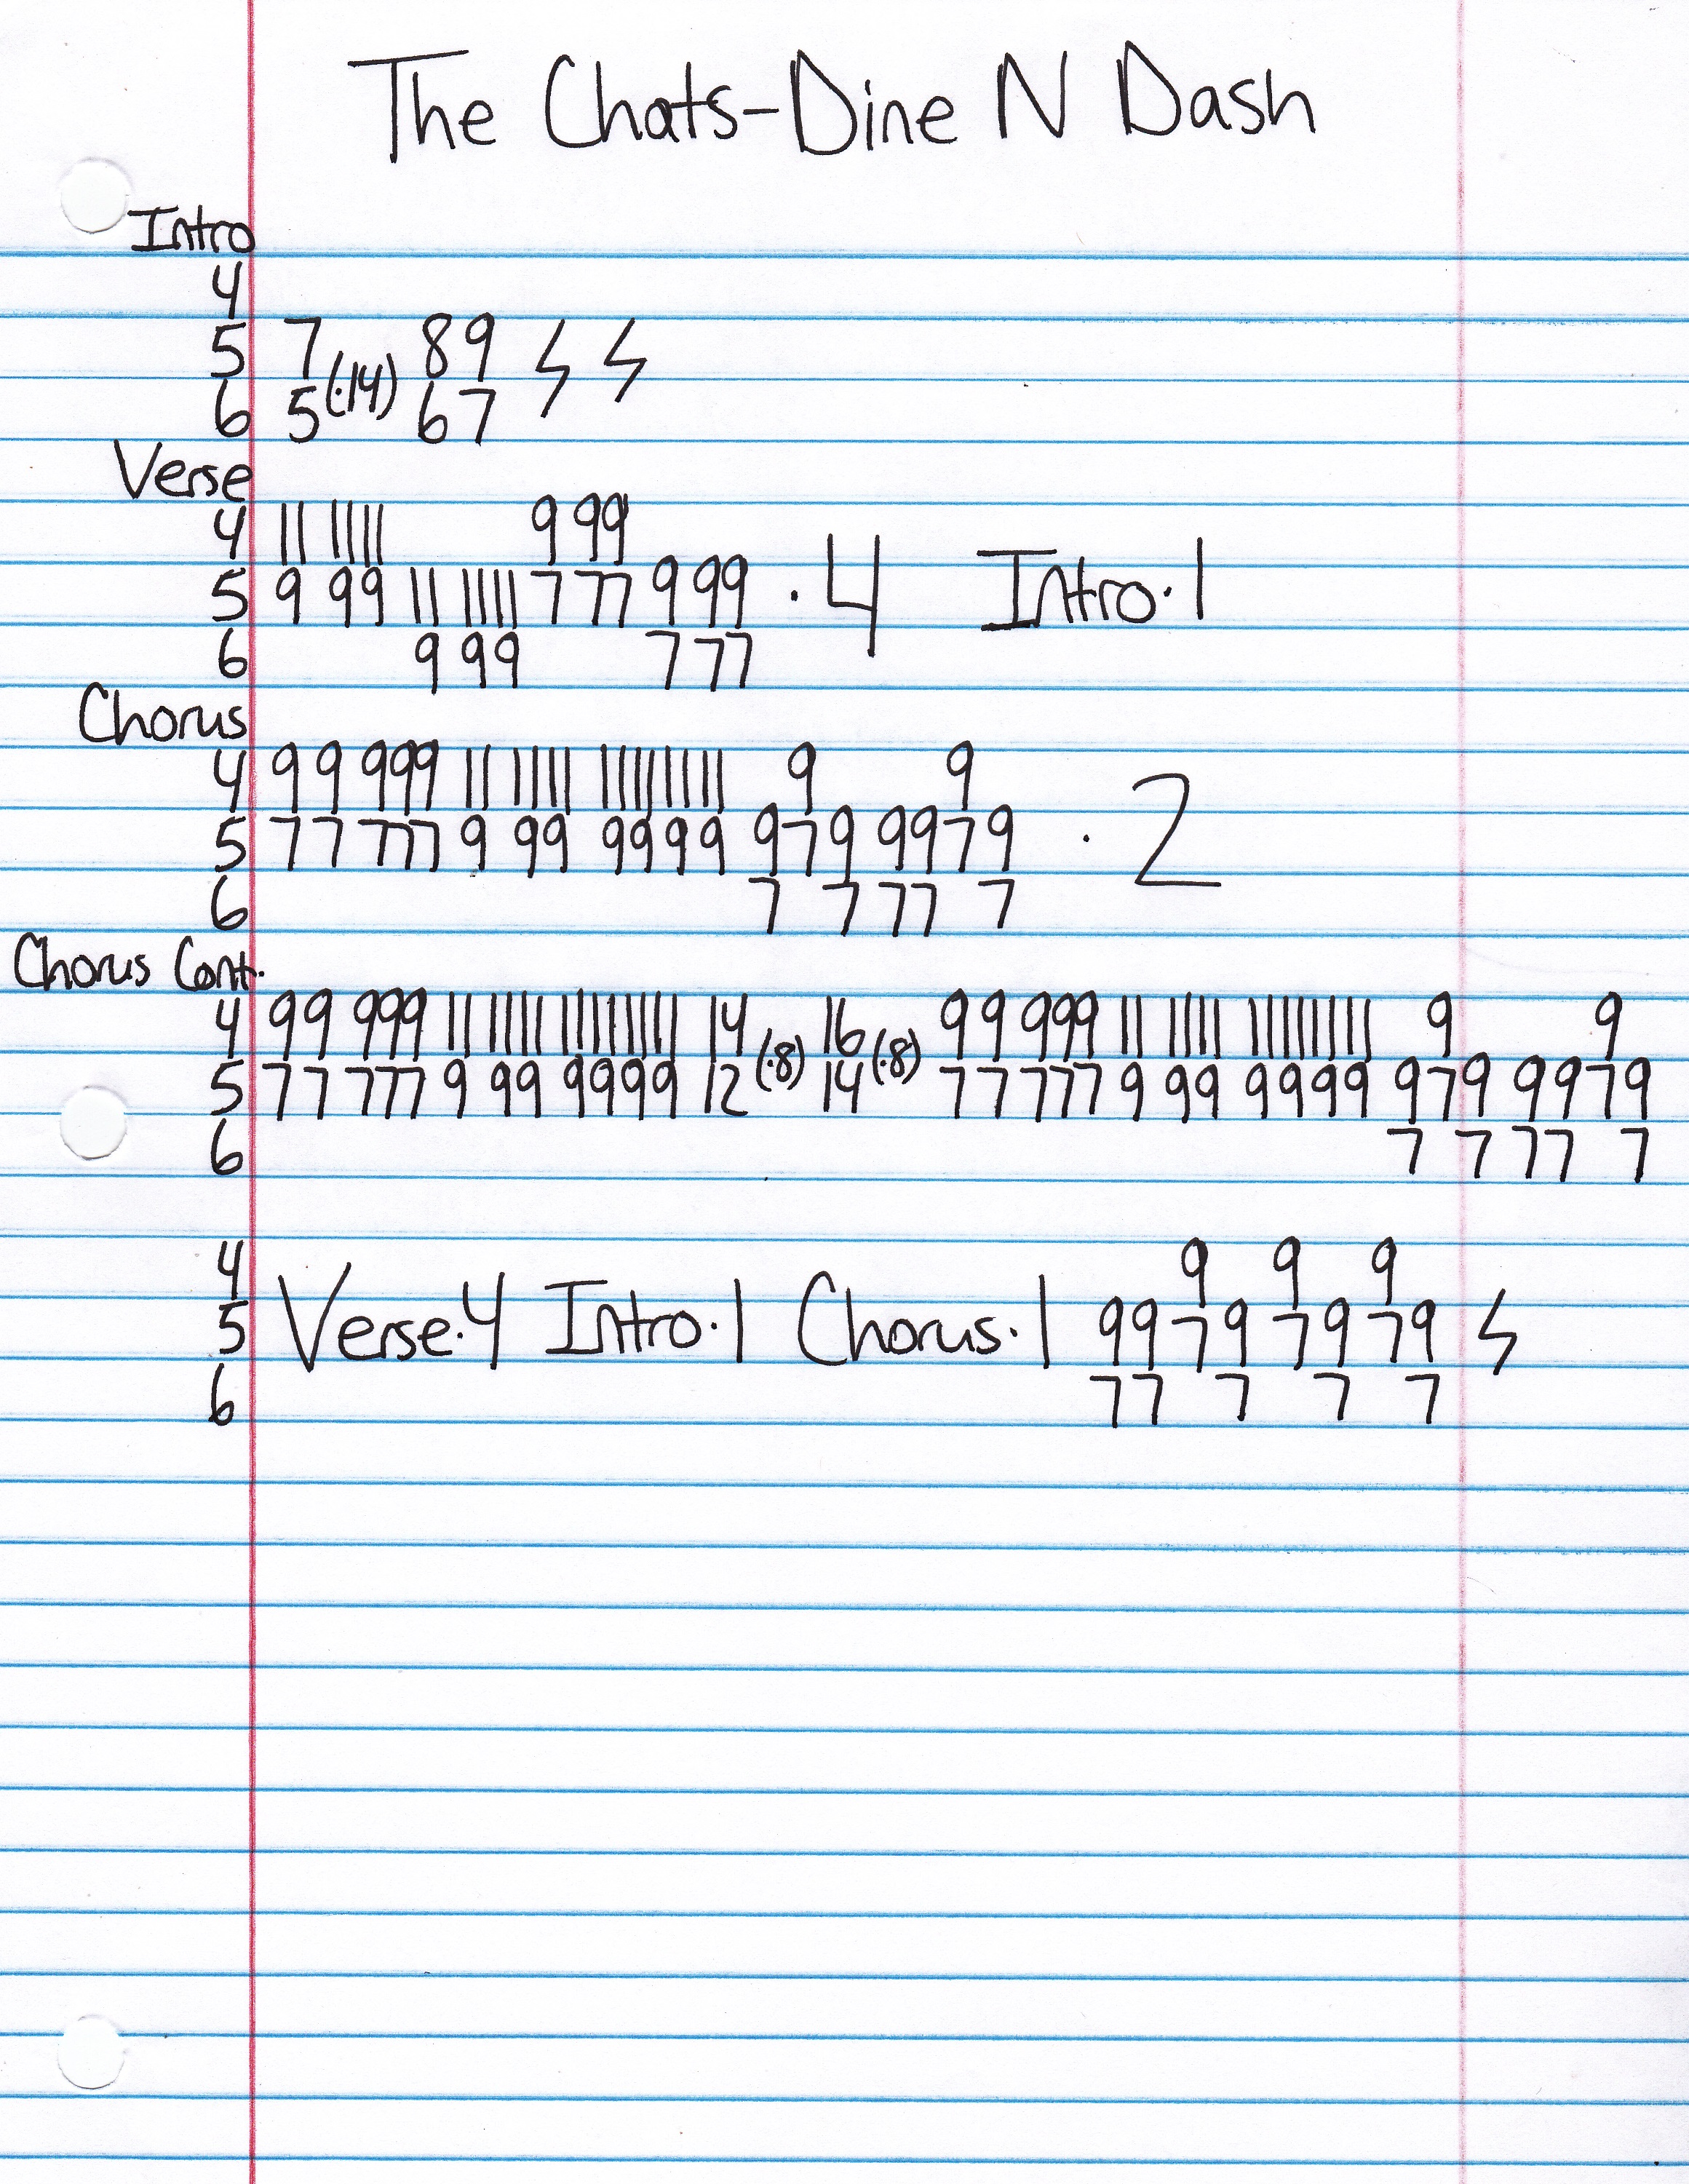 The Chats-Dine N Dash
Intro
4
5 7 (·14) 8 9
6 5 6 7
Verse
4 11 11 11 9 9 9
5 9 9 9 11 11 11 7 7 7 9 9 9 · 4 Intro·1
6 9 9 9 7 7 7
Chorus
4 9 9 9 9 9 11 11 11 11 11 11 11 9 9
5 7 7 7 7 7 9 9 9 9 9 9 9 9 7 9 9 9 7 9 · 2
6 7 7 7 7 7
Chorus Cont.
4 9 9 9 9 9 11 11 11 11 11 11 11 14 (·8) 16 (·8) 9 9 9 9 9 11 11 11 11 11 11 11 9 9
5 7 7 7 7 7 9 9 9 9 9 9 9 12 14 7 7 7 7 7 9 9 9 9 9 9 9 9 7 9 9 9 7 9
6 7 7 7 7 7
4 9 9 9
5 Verse·4 Intro·1 Chorus·1 9 9 7 9 7 9 7 9
6 7 7 7 7 7